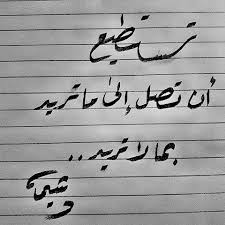 تستطيع
أن تصل إلى ما تريد
بما لا تريد ..